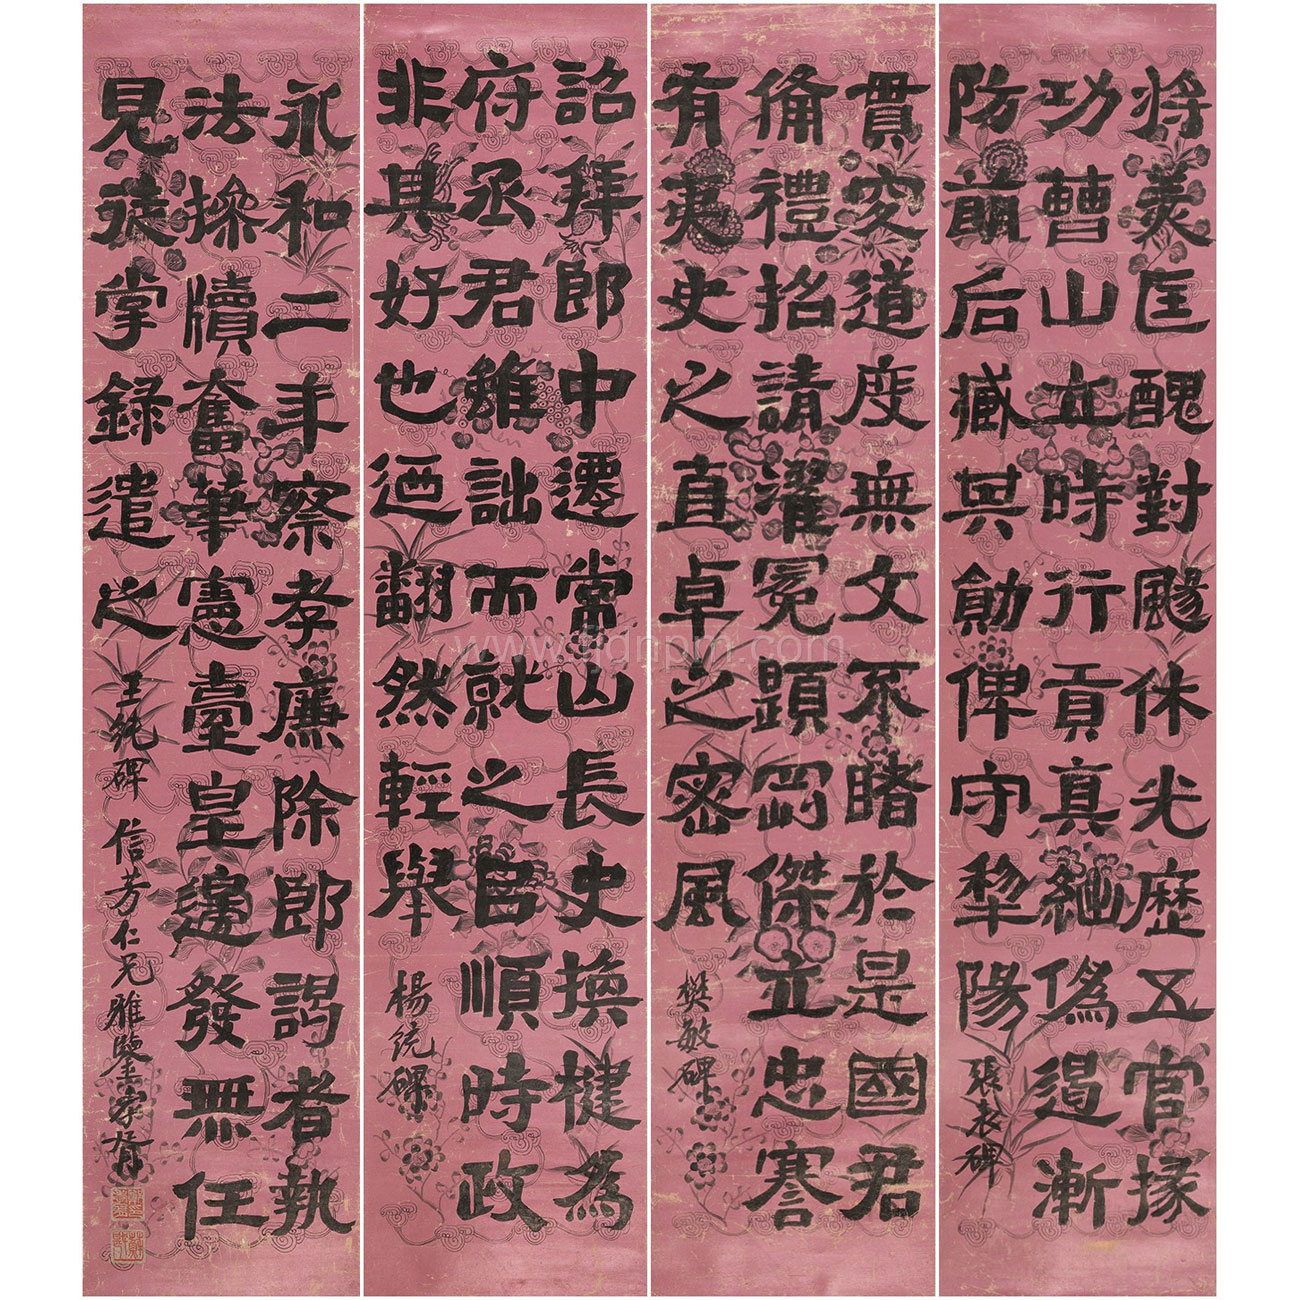 将羙匡醜對颺休光歷五官掾
功曹山立時行貢真絀偽遏漸
防萌后臧其勛俾守犂陽
張表碑
貫究道度無文不睹於是國君
備禮招請濯冕題罡傑立忠謇
有夷史之直卓之密風
樊敏碑
詔拜郎中遷常山長史換犍為
府丞君雖詘而就之㠯順時政
非其好也迺翻然輕舉
楊統碑
永和二年察孝廉除郎謁者執
法操牘奮筆憲臺皇邊發無任
見徒掌錄遣之
王純碑
信芳仁兄雅鑒
www.fjdnpm.com